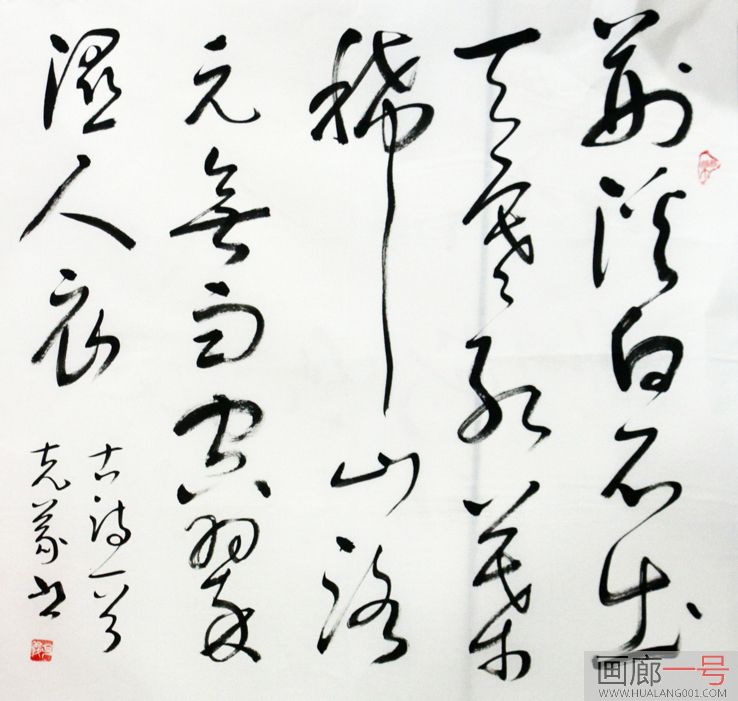 荆溪白石出
天寒红叶
稀山路
元無雨空翠
濕人衣
古诗一首
克义书
画廊一号
WWW.HUALANG001.COM